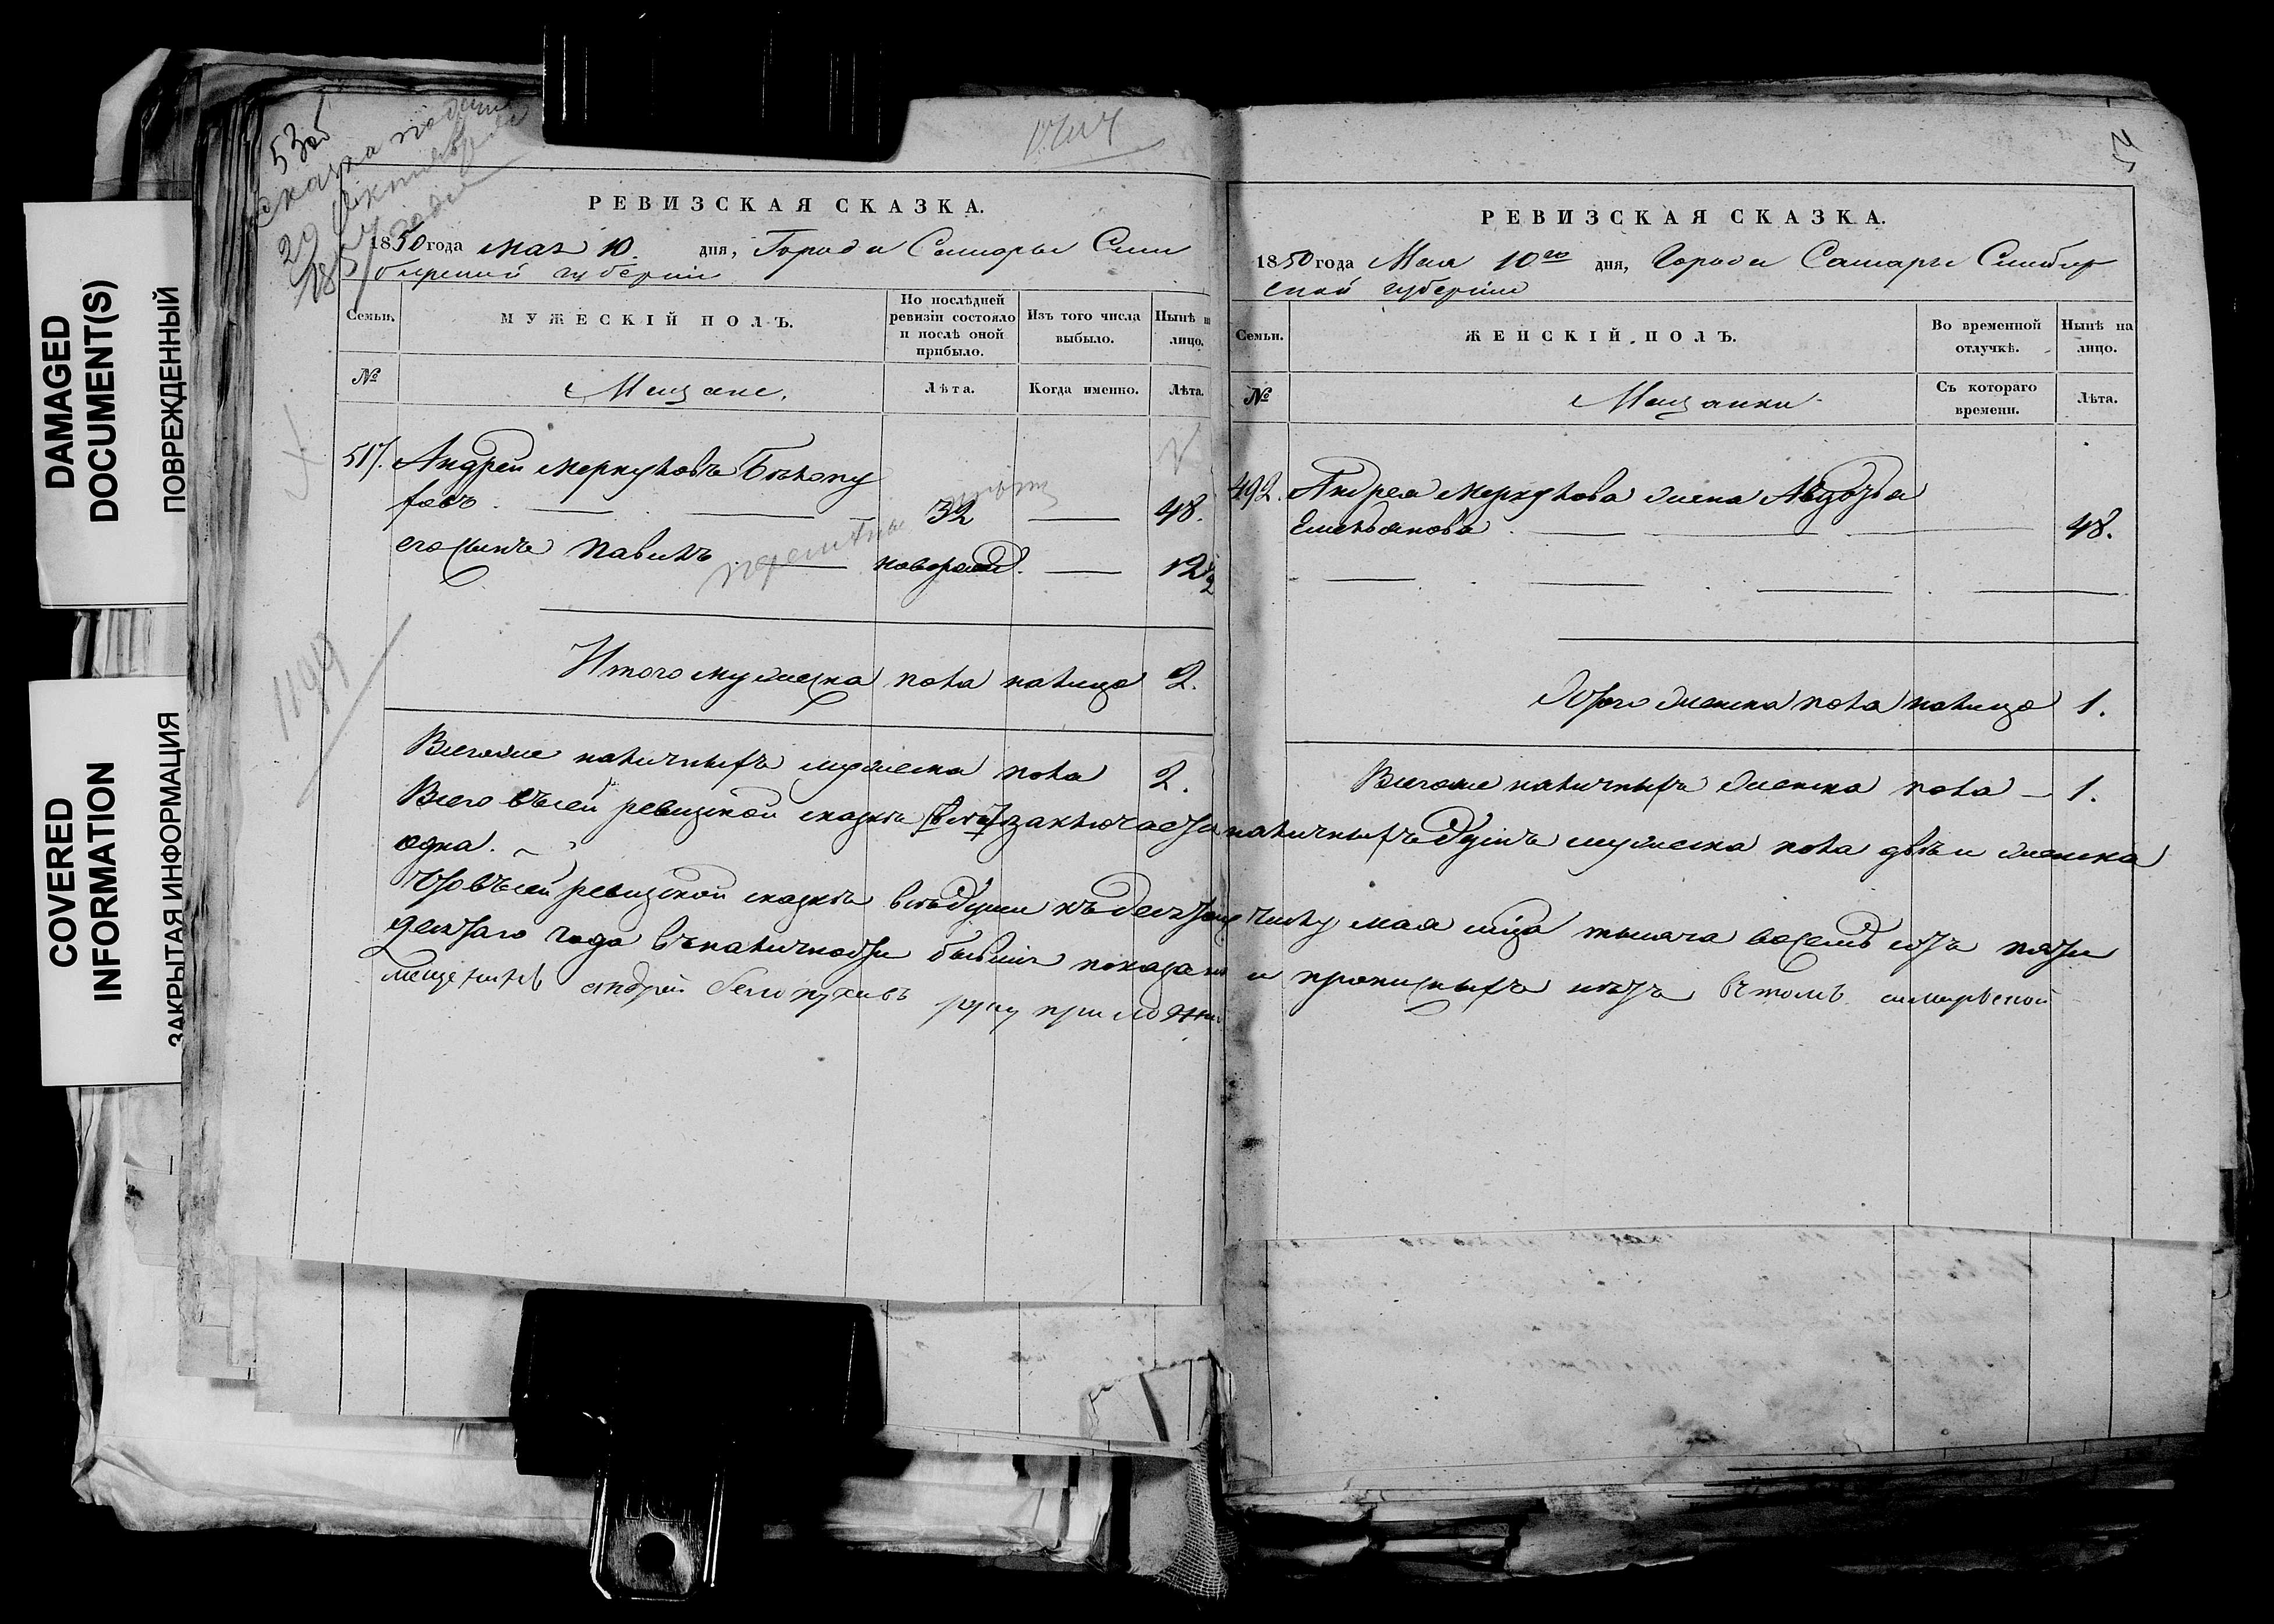 DAMAGED
DOCUMENT(S)
ПОВРЕЖДЕННЫЙ
COVERED
INFORMATION
ЗАКРЫТАЯ ИНФОРМАЦИЯ
530
29 Октября
1851 года
РЕВИЗСКАЯ СКАЗКА.
1850 года мая 10. дня, Города Самары Сим
бирской губернии
Семьи.
МУЖЕСКІЙ ПОЛЪ.
По послѣдней
ревизіи состояло
и послѣ оной
прибыло.
Изъ того числа
выбыло.
Нынѣ на
лицо.
№
Мещане.
Лѣта.
Когда именно.
Лѣта.
517. Андрей Меркуловъ Бѣлопу
ховъ. 32 48.
его сынъ Павилъ новорожд. 12 1/2
1199
Итого мужеска пола налицо 2.
Всегоже наличныхъ мужеска пола 2.
РЕВИЗСКАЯ СКАЗКА.
1850 года Мая 10го дня, Города Самары Симбир
ской губернии
Семьи.
ЖЕНСКІЙ ПОЛЪ.
Во временной
отлучкѣ.
Нынѣ на
лицо.
№
Мещанки
Съ котораго
времени.
Лѣта.
492. Андрея Меркулова жена Авдотья
Емельянова 48.
Итого женска пола налицо 1.
Всегоже наличныхъ женска пола 1.
Всего въ сей ревизской сказкѣ заключается наличныхъ душъ мужеска пола двѣ и женска
одна.
Что въ сей ревизской сказкѣ всѣ души къ десятому числу мая мца тысяча восемь сотъ пяти
десятаго года въ наличности бывшие показаны и прописныхъ нѣтъ в томъ самарской
мещенинъ андрей белопуховъ руку приложил